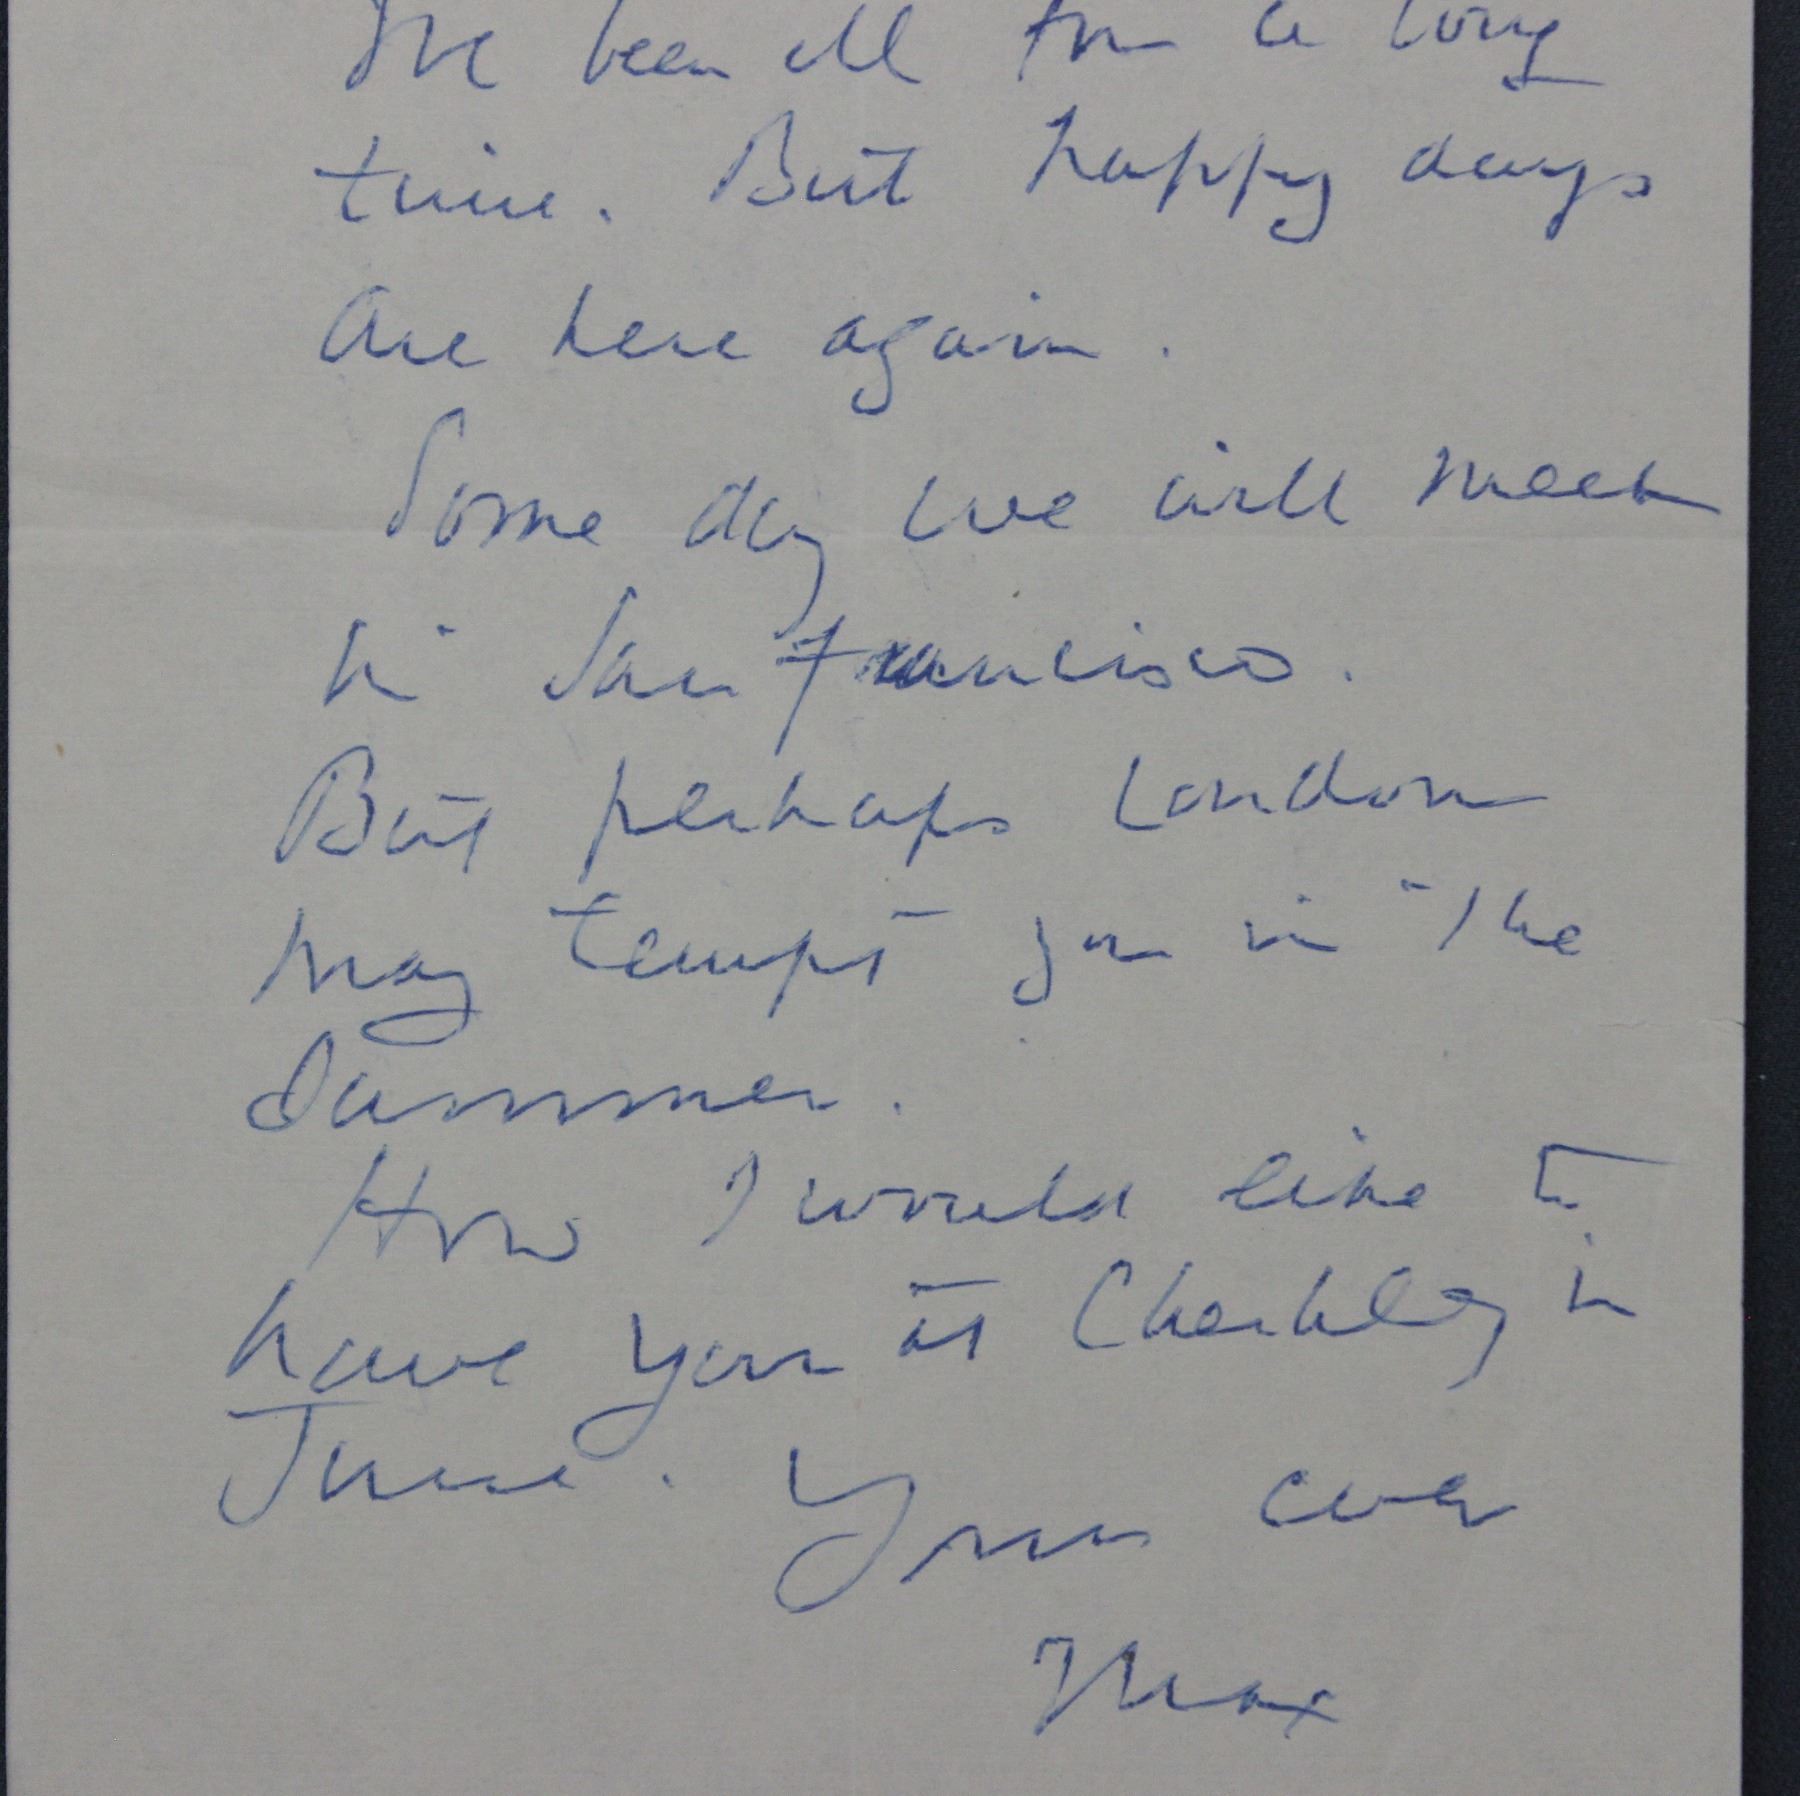 I've been ill for a long
time. But happy days
are here again.
Some day we will meet
in San Francisco.
But perhaps London
may tempt you in the
Summer.
How I would like to
have you at Cherkley in
June. Yours ever
Max